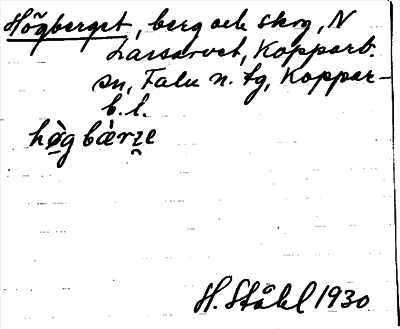 Högberget, berg och skog, N
Larsarvet, Kopparb.
sn, Falu n. tg, Koppar-
b. l.
hò̤g bæ̀rz̤e
H. Ståhl 1930